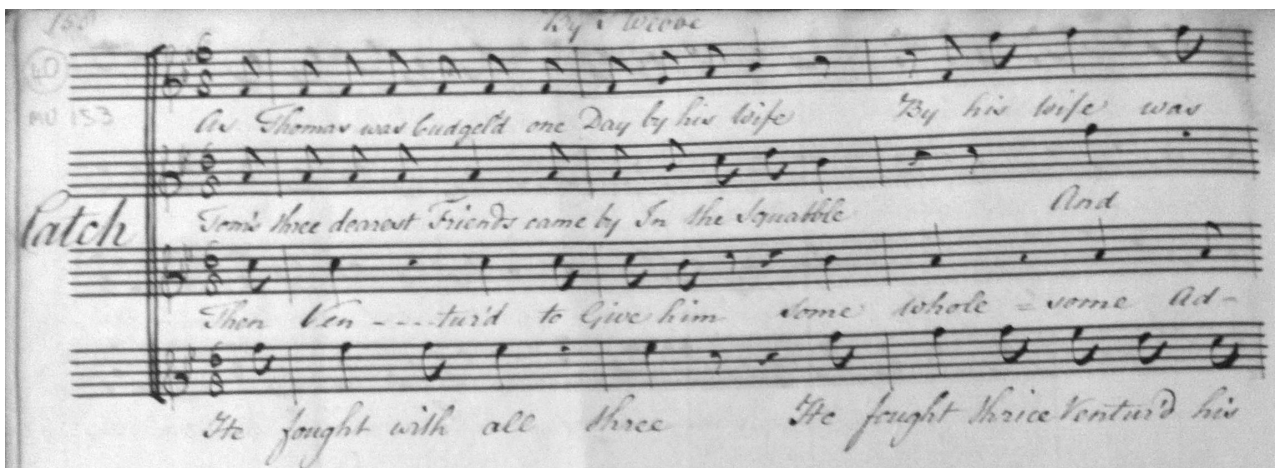 By
40
MU 153
As Thomas was Cudgel'd one Day by his Wife By his Wife was
Catch
Tom's three dearest Friends came by In the Squabble And
Then Ven - - - - tur'd to Give him some whole = some Ad-
He fought with all three He fought thrice Ventur'd his